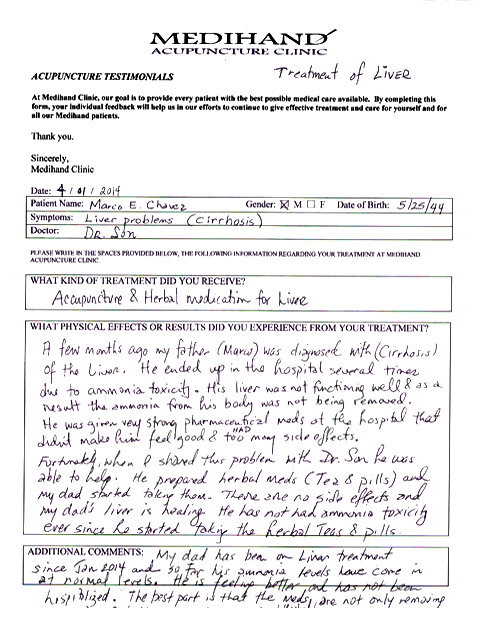 MEDIHAND
ACUPUNCTURE CLINIC
Treatment of LIVER
ACUPUNCTURE TESTIMONIALS
At Medihand Clinic, our goal is to provide every patient with the best possible medical care available. By completing this
form, your individual feedback will help us in our efforts to continue to give effective treatment and care for yourself and for
all our Medihand patients.
Thank you.
Sincerely,
Medihand Clinic
Date: 4/01/2014
Patient Name: Marco E. Chavez Gender: ☒ M ☐ F Date of Birth: 5/25/44
Symptoms: Liver problems (Cirrhosis)
Doctor: DR. Son
PLEASE WRITE IN THE SPACES PROVIDED BELOW, THE FOLLOWING INFORMATION REGARDING YOUR TREATMENT AT MEDIHAND
ACUPUNCTURE CLINIC.
WHAT KIND OF TREATMENT DID YOU RECEIVE?
Accupuncture & Herbal medication for Liver
WHAT PHYSICAL EFFECTS OR RESULTS DID YOU EXPERIENCE FROM YOUR TREATMENT?
A few months ago my father (Marco) was diagnosed with (Cirrhosis)
of the Liver. He ended up in the hospital several times
due to ammonia toxicity. His liver was not functioning well & as a
result the ammonia from his body was not being removed.
He was given very strong pharmaceutical meds at the hospital that
didn't make him feel good & HAD too many side effects.
Fortunately, when I shared this problem with Dr. Son he was
able to help. He prepared herbal meds (Tea & pills) and
my dad started taking them. There are no side effects and
my dad's liver is healing. He has not had ammonia toxicity
ever since he started taking the herbal Teas & pills.
ADDITIONAL COMMENTS: My dad has been on Liver treatment
since Jan 2014 and so far his ammonia levels have come in
at normal levels. He is feeling better and has not been
hospitalized. The best part is that the meds, are not only removing